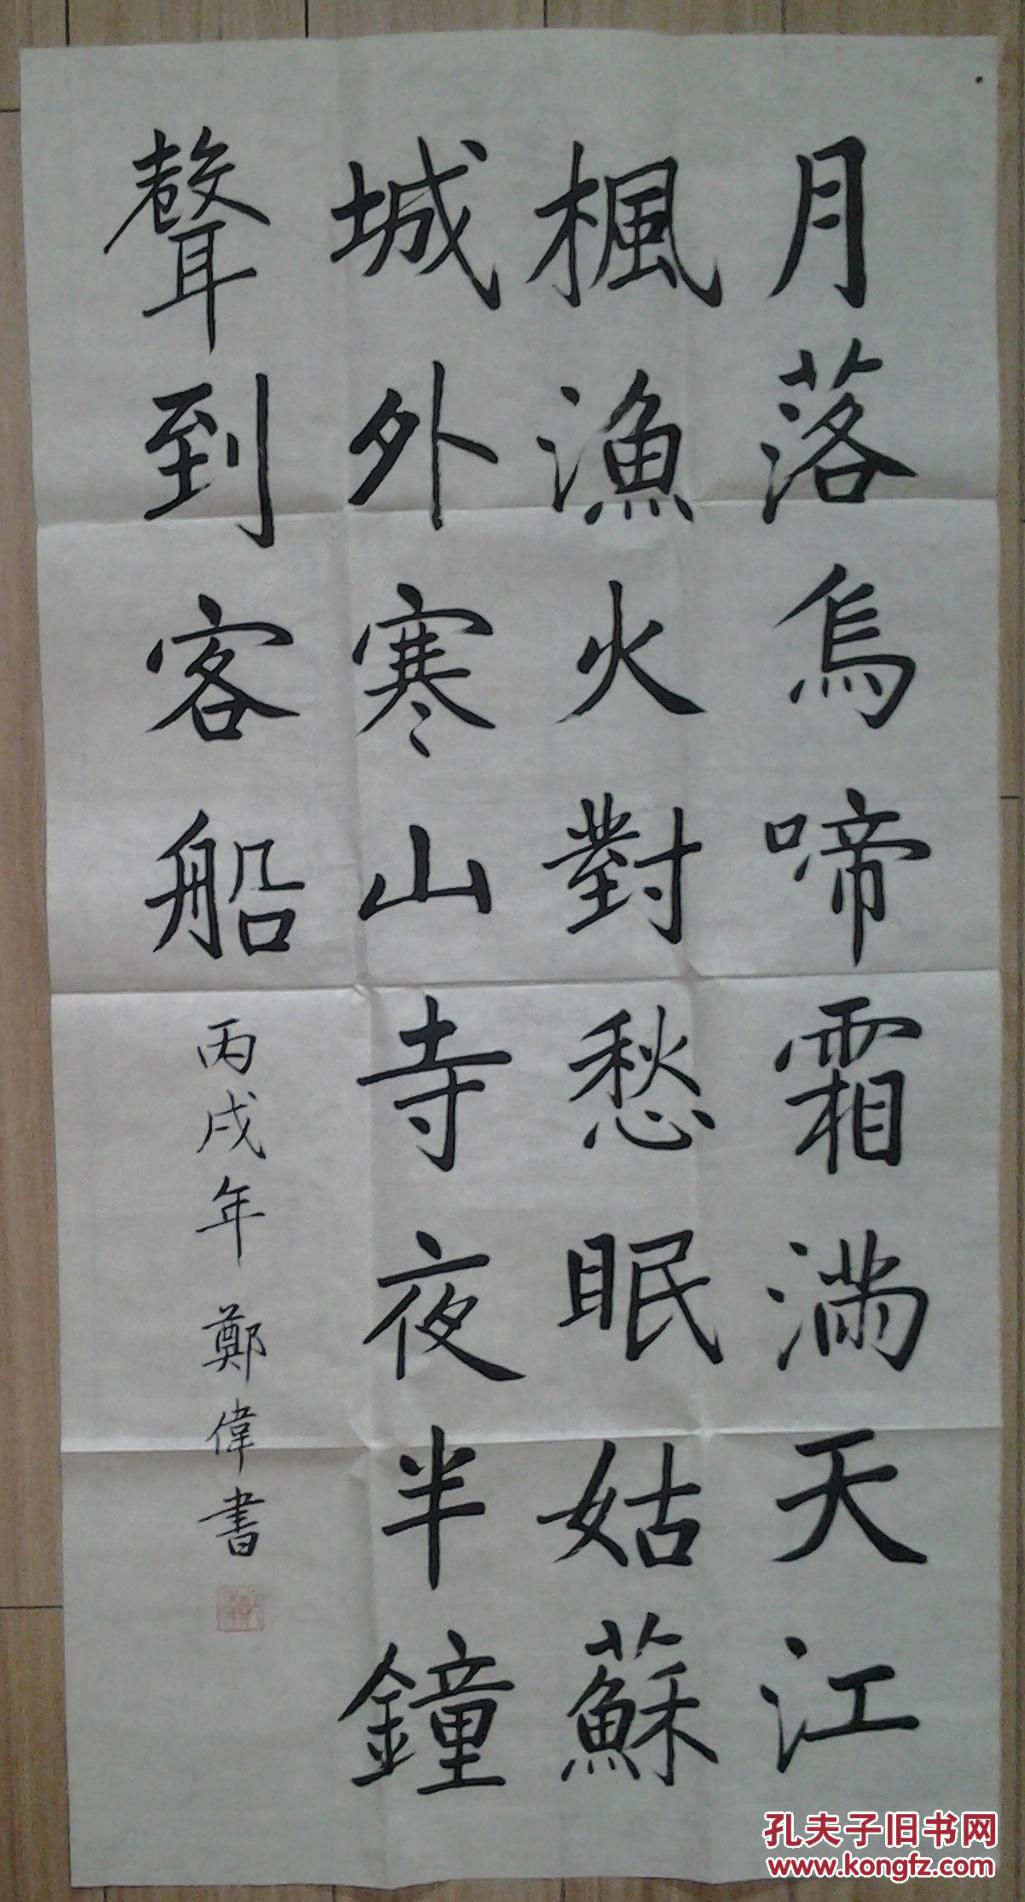 月落烏啼霜滿天江
楓漁火對愁眠姑蘇
城外寒山寺夜半鐘
聲到客船
丙戌年 鄭偉書
孔夫子旧书网
www.kongfz.com